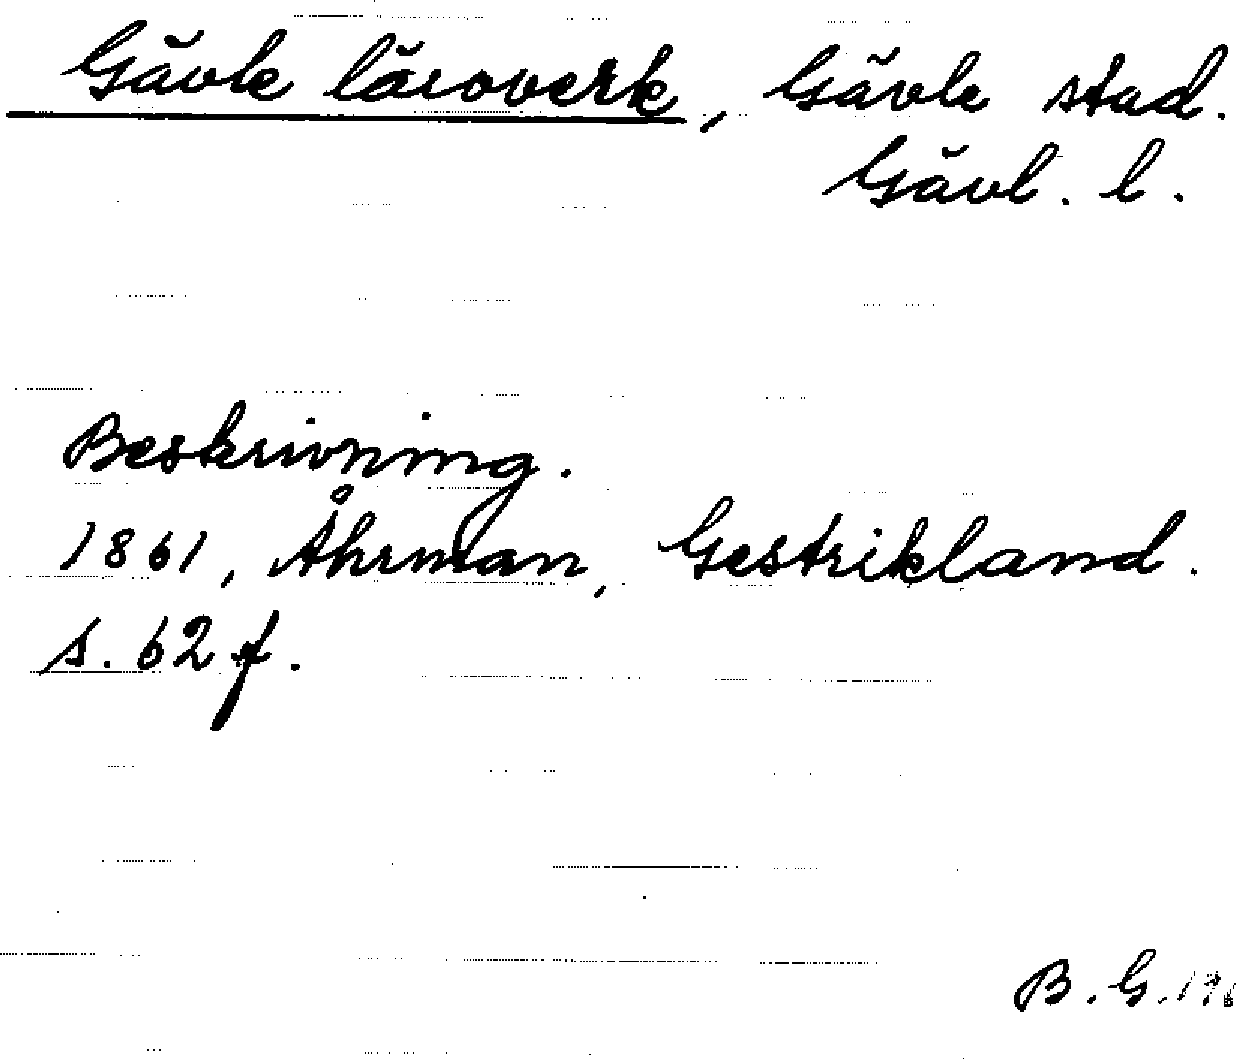 Gävle läroverk, Gävle stad.
Gävl. l.
Beskrivning.
1861, Åhrman, Gestrikland.
s. 62 f.
B. G.